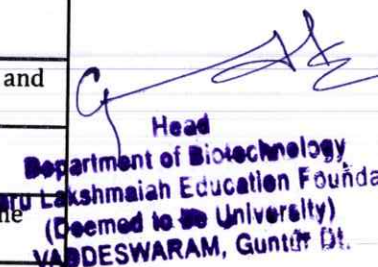 and
Head
Department of Biotechnology
Lakshmaiah Education Founda
the
(Deemed to be University)
VADDESWARAM, Guntur Dt.